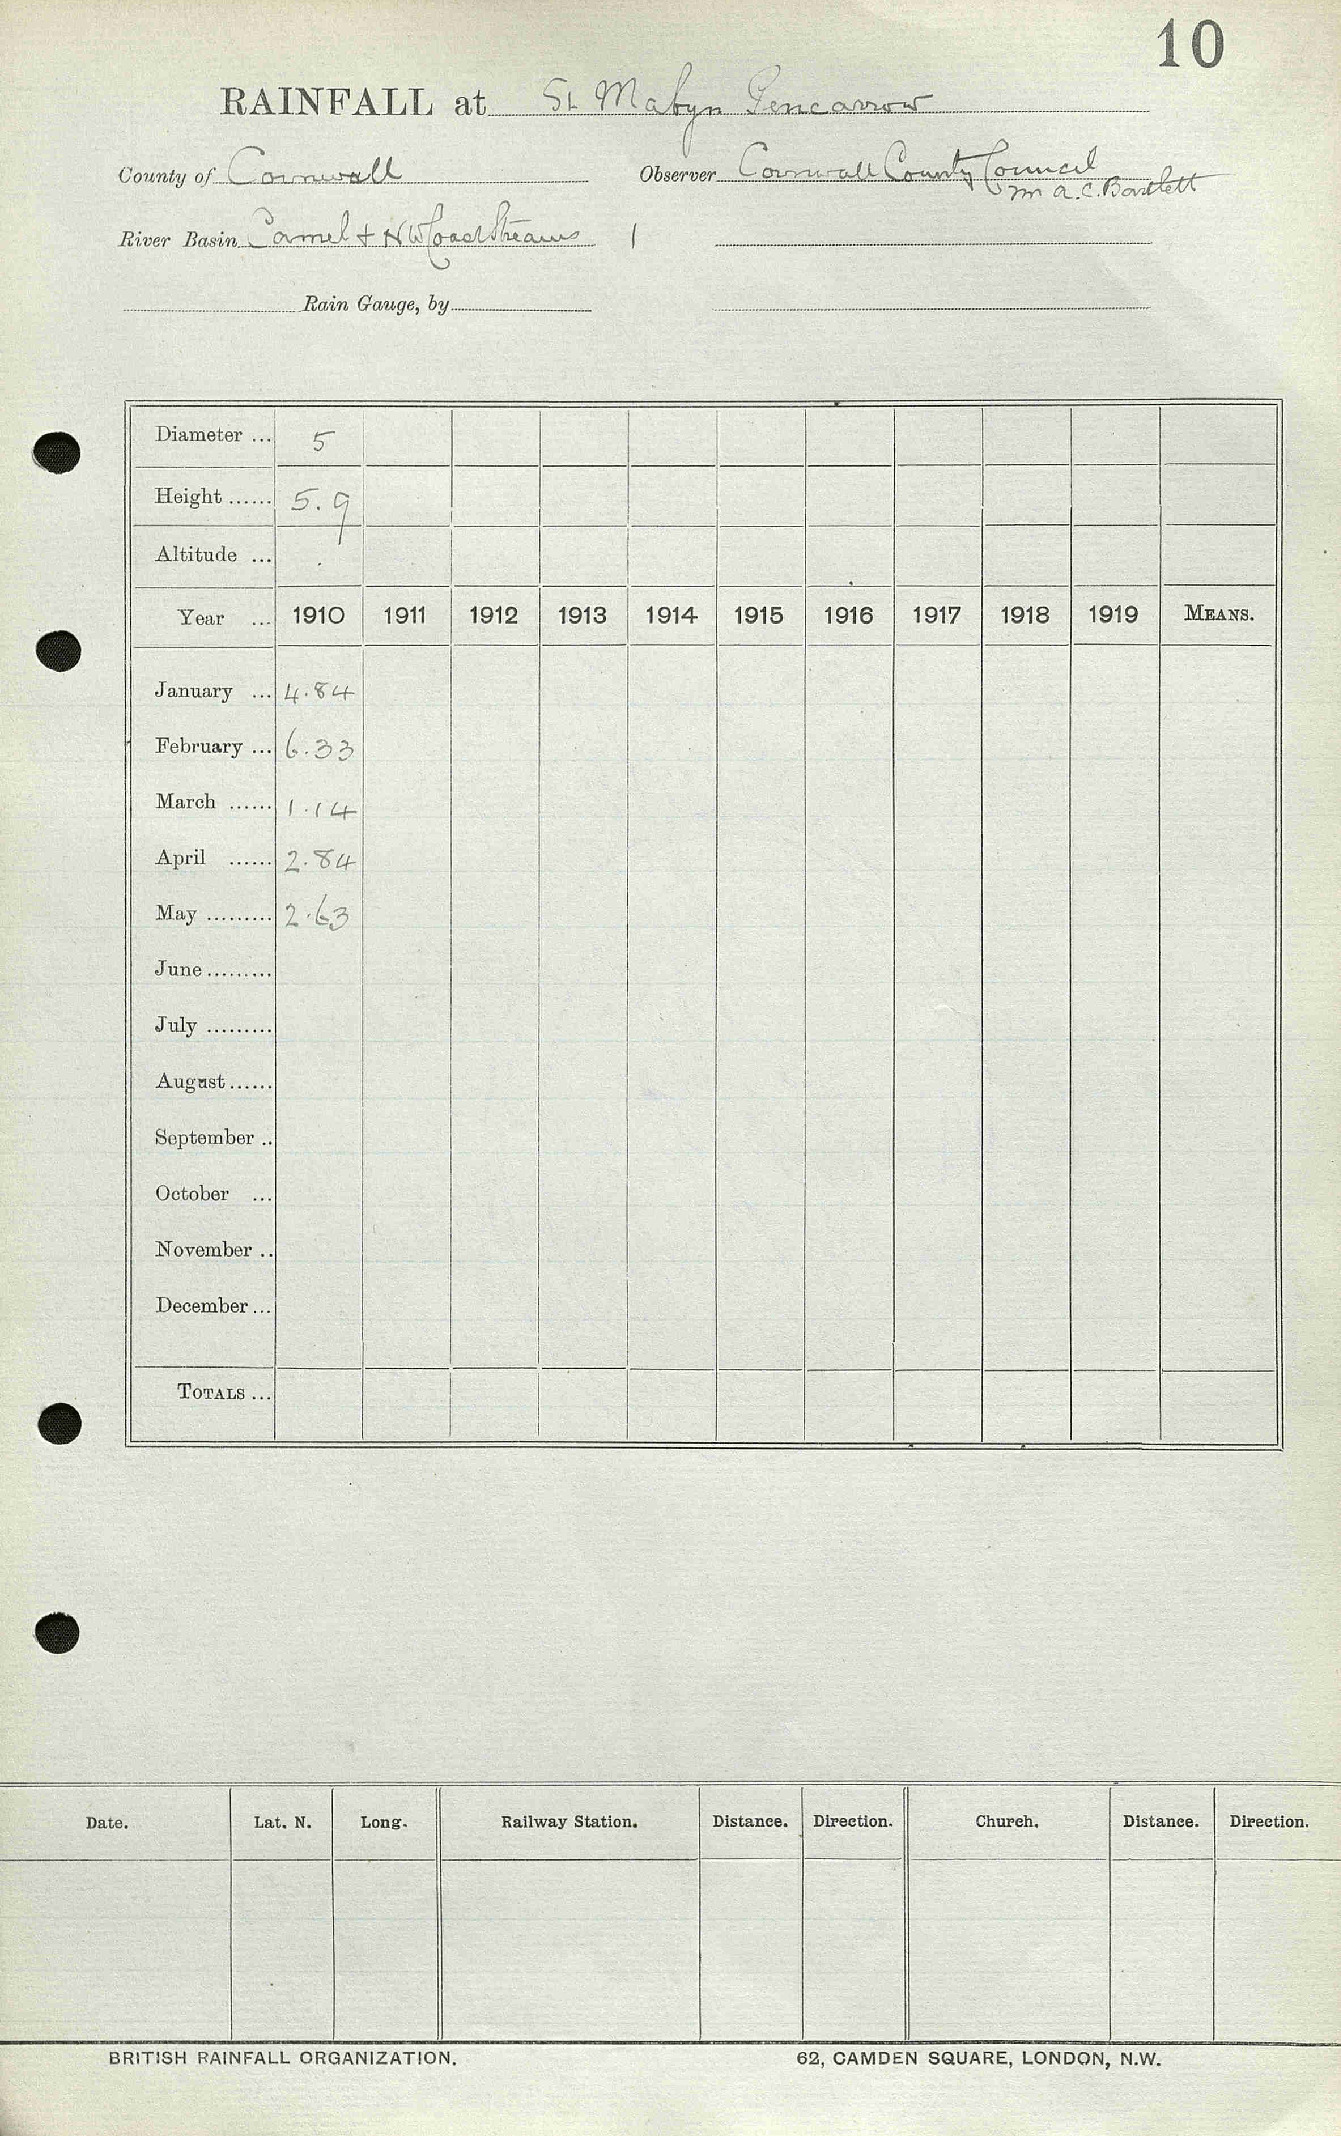 10
RAINFALL at St Mabyn Pencarrow
County of Cornwall Observer Cornwall County Council
Mr A.C. Bartlett
River Basin Camel & NW Coast Streams 1
Rain Gauge, by
Diameter ... 5
Height ...... 5.9
Altitude ...
Year ... 1910 1911 1912 1913 1914 1915 1916 1917 1918 1919 MEANS.
January ... 4.84
February ... 6.33
March ...... 1.14
April ...... 2.84
May ......... 2.63
June .........
July .........
August ......
September ..
October ...
November ..
December ...
TOTALS ...
Date. Lat. N. Long. Railway Station. Distance. Direction. Church. Distance. Direction.
BRITISH RAINFALL ORGANIZATION. 62, CAMDEN SQUARE, LONDON, N.W.